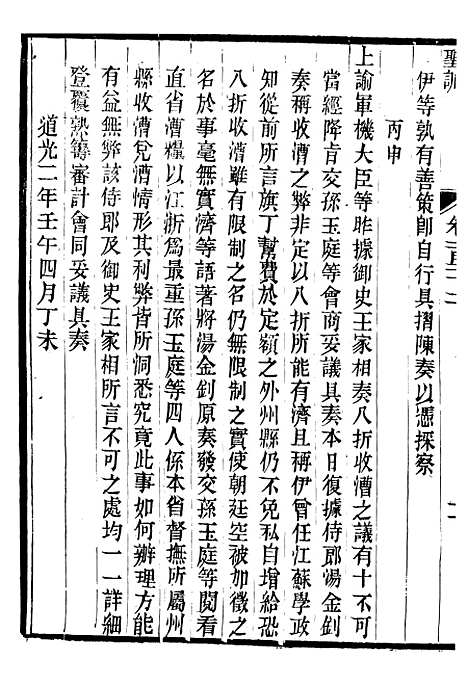 聖訓
卷一百二十二
伊等孰有善策卽自行具摺陳奏以憑採察
丙申
上諭軍機大臣等昨據御史王家相奏八折收漕之議有十不可
當經降旨交孫玉庭等會商妥議具奏本日復據侍郎湯金釗
奏稱收漕之弊非定以八折所能有濟且稱伊曾任江蘇學政
知從前所言旗丁幫費於定額之外州縣仍不免私自增給恐
八折收漕雖有限制之名仍無限制之實使朝廷空被加徵之
名於事毫無實濟等語著將湯金釗原奏發交孫玉庭等閱看
直省漕糧以江浙爲最重孫玉庭等四人係本省督撫所屬州
縣收漕兌漕情形其利弊皆所洞悉究竟此事如何辦理方能
有益無弊該侍郎及御史王家相所言不可之處均一一詳細
登覆熟籌審計會同妥議具奏
道光二年壬午四月丁未